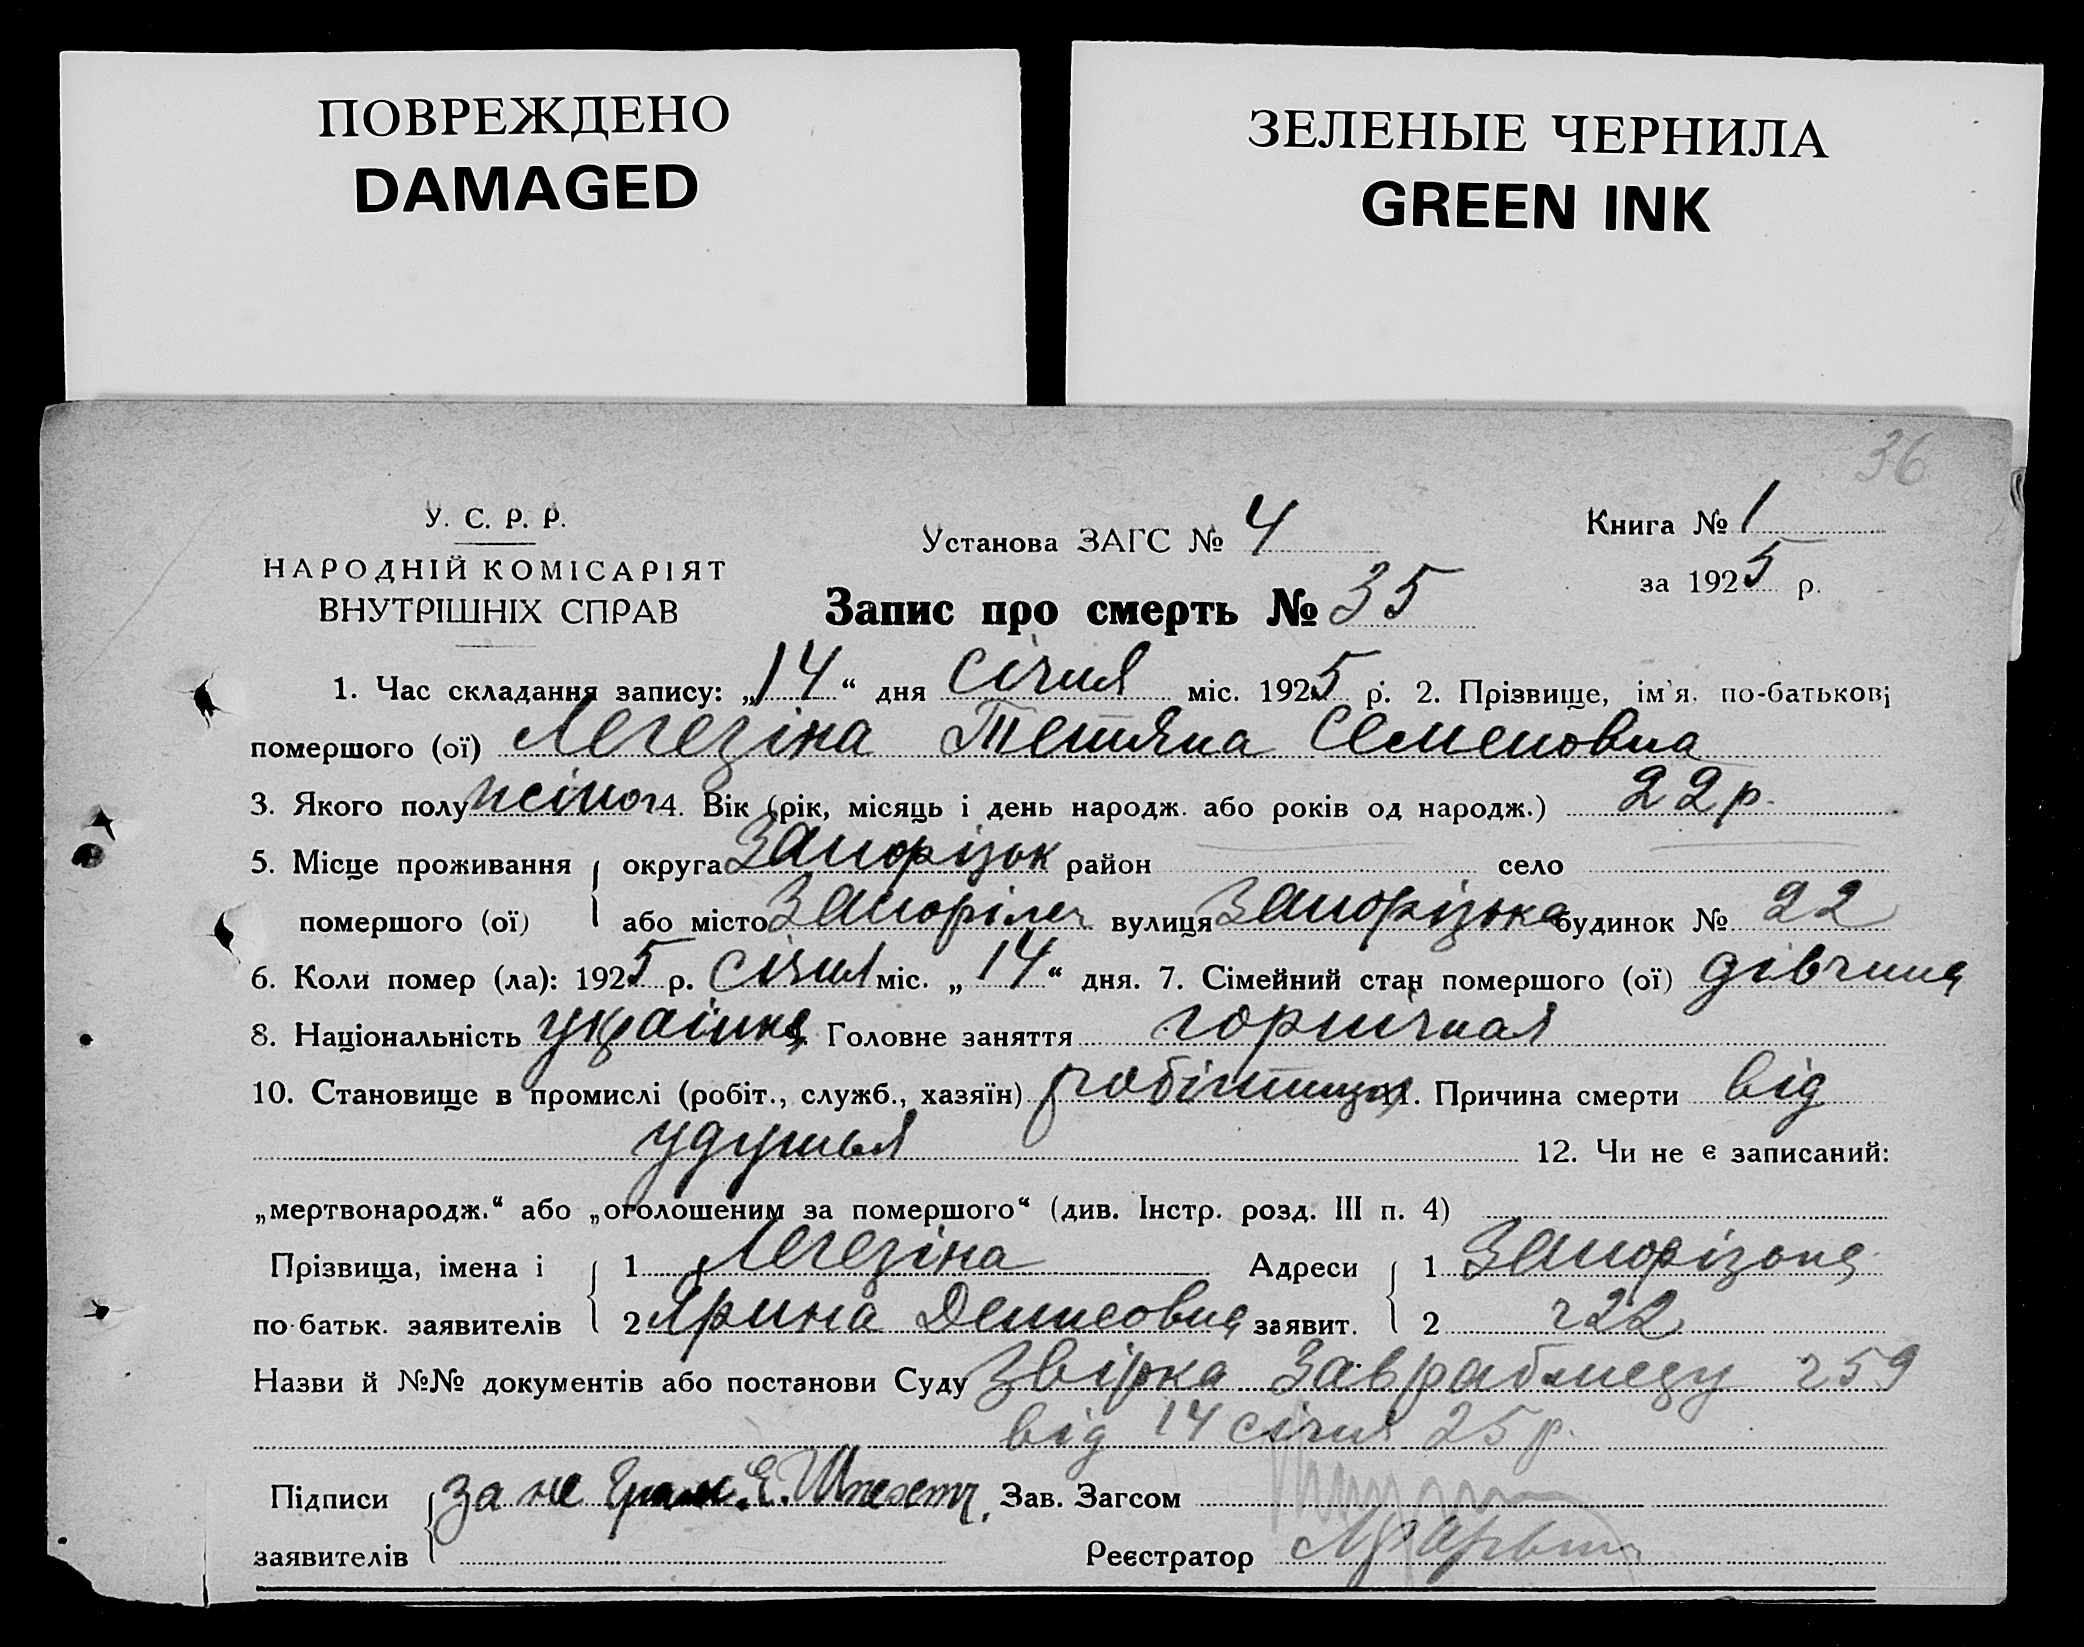 ПОВРЕЖДЕНО
DAMAGED
ЗЕЛЕНЫЕ ЧЕРНИЛА
GREEN INK
36
У. С. Р. Р.
НАРОДНІЙ КОМІСАРІЯТ
ВНУТРІШНІХ СПРАВ
Установа ЗАГС № 4
Книга № 1
за 1925 р.
Запис про смерть № 35
1. Час складання запису: „14“ дня січня міс. 1925 р. 2. Прізвище, ім'я, по-батькові
помершого (ої) Легезіна Тетяна Семеновна
3. Якого полу жіноч 4. Вік (рік, місяць і день народж. або років од народж.) 22 р.
5. Місце проживання округа Запорізьк район село
помершого (ої) або місто вулиця Запорізька будинок № 22
6. Коли помер (ла): 1925 р. січня міс. „14“ дня. 7. Сімейний стан помершого (ої) дівчина
8. Національність українка 9. Головне заняття горничная
10. Становище в промислі (робіт., служб., хазяїн) робітниця 11. Причина смерти від
удушья 12. Чи не є записаний:
„мертвонародж.“ або „оголошеним за помершого“ (див. Інстр. розд. III п. 4)
Прізвища, імена і 1 Легезіна Адреси 1 Запорізька
по-батьк. заявителів 2 Ярина Денисовна заявит. 2 22
Назви й №№ документів або постанови Суду 259
від 14 січня 25 р.
Підписи за не грам. Е. Зав. Загсом
заявителів Реєстратор